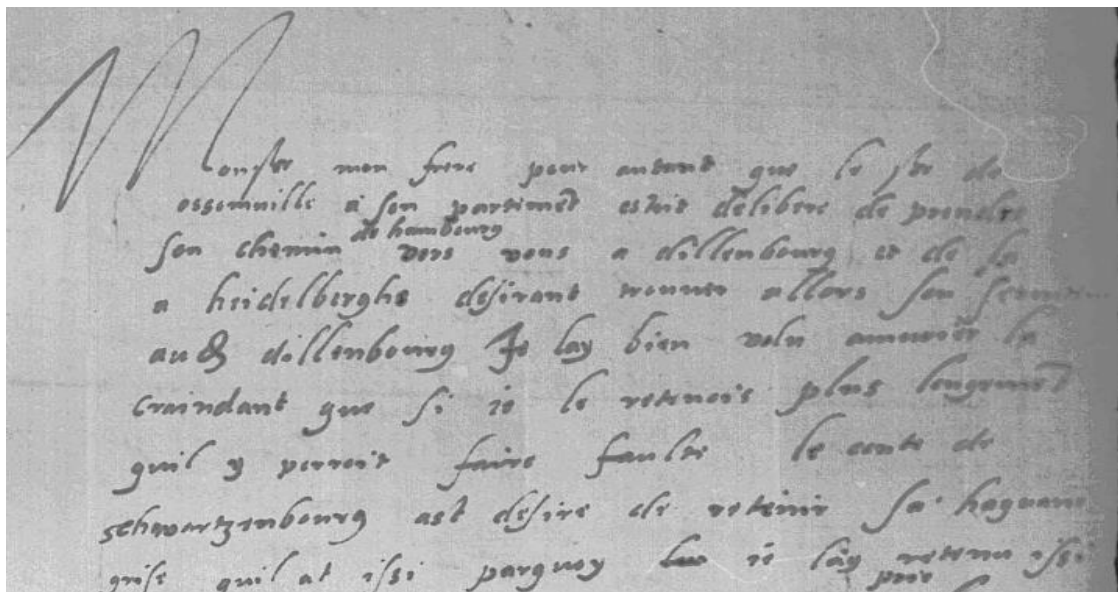 Monsr mon frere pour autant que le sr de
ossonville a son partemēt estoit delibere de prendre
de hambourg
son chemin vers vous a dillenbourg et de la
a heidelberghe desirant trouver allors son
audt dillenbourg Je lay bien volu la
craindant que si ie le retenois plus longemēt
quil y perroit faire faulte le conte de
schwartzenbourg ast desire de retenir sa haguane
grise quil at issi parquoy ie lay retenu issi
prie